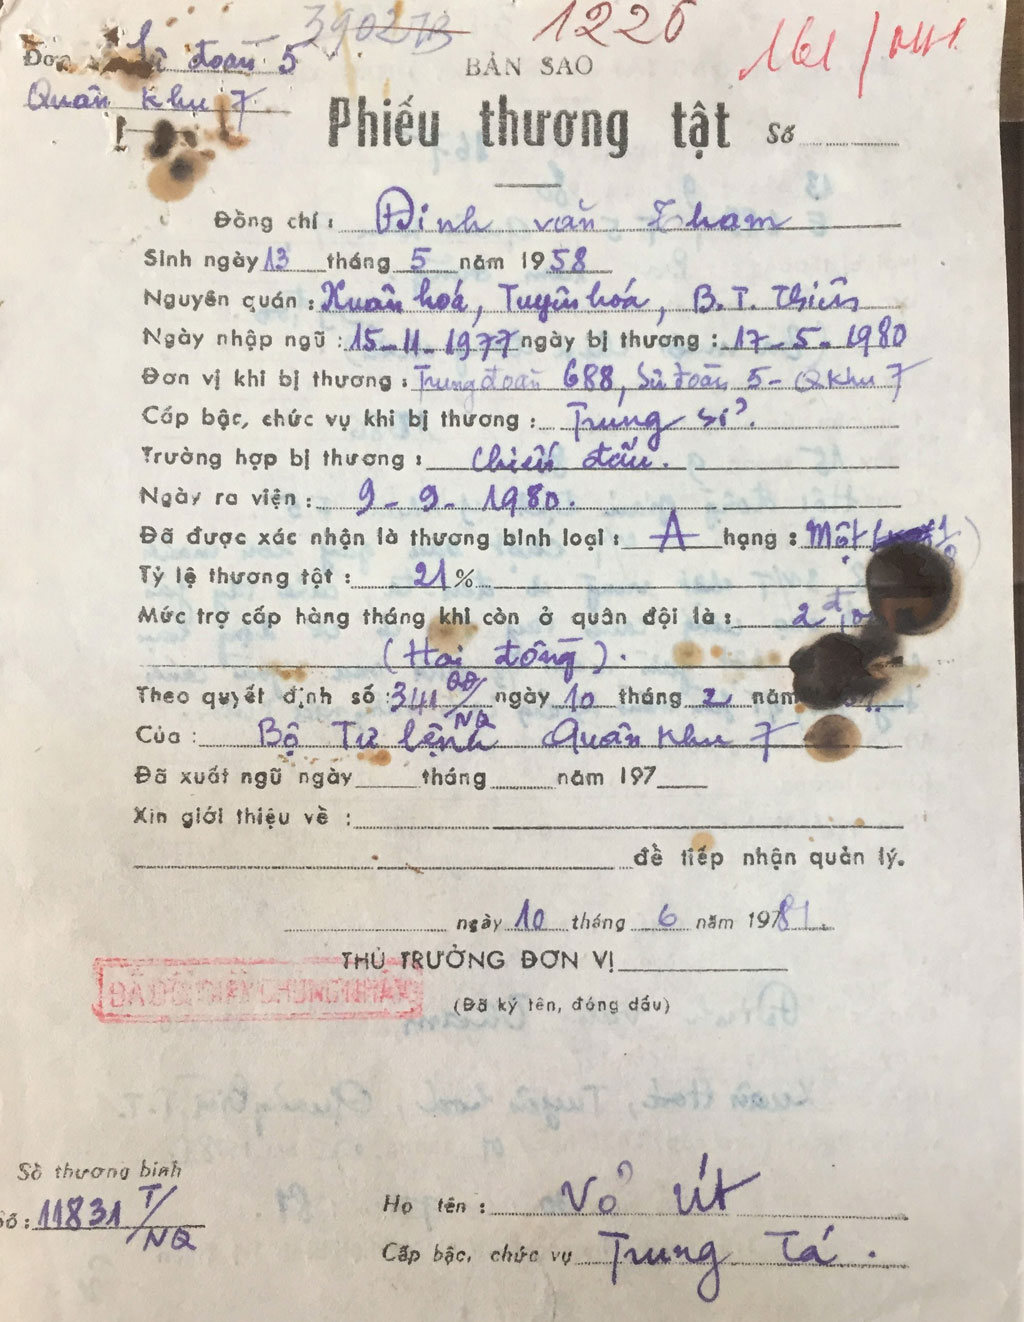 390273 1226 161/
Đơn Sư đoàn 5
BẢN SAO
Quân khu 7
Phiếu thương tật Số
Đồng chí: Đinh văn Tham
Sinh ngày 13 tháng 5 năm 1958
Nguyên quán: Xuân hoá, Tuyên hoá, B.T. Thiên
Ngày nhập ngũ: 15-11-1977 ngày bị thương: 17-5-1980
Đơn vị khi bị thương: Trung đoàn 688, Sư đoàn 5 - Qkhu 7
Cấp bậc, chức vụ khi bị thương: Trung sĩ.
Trường hợp bị thương: Chiến đấu.
Ngày ra viện: 9-9-1980.
Đã được xác nhận là thương binh loại: A hạng: Một
Tỷ lệ thương tật: 21%
Mức trợ cấp hàng tháng khi còn ở quân đội là: 2đ
(Hai đồng).
Theo quyết định số: 341 QĐ/NQ ngày 10 tháng 2 năm
Của: Bộ Tư lệnh Quân khu 7
Đã xuất ngũ ngày tháng năm 197
Xin giới thiệu về:
đề tiếp nhận quản lý.
ngày 10 tháng 6 năm 1981.
THỦ TRƯỞNG ĐƠN VỊ
(Đã ký tên, đóng dấu)
Sổ thương binh
Số: 11831 T/NQ
Họ tên: Võ Út
Cấp bậc, chức vụ Trung Tá.